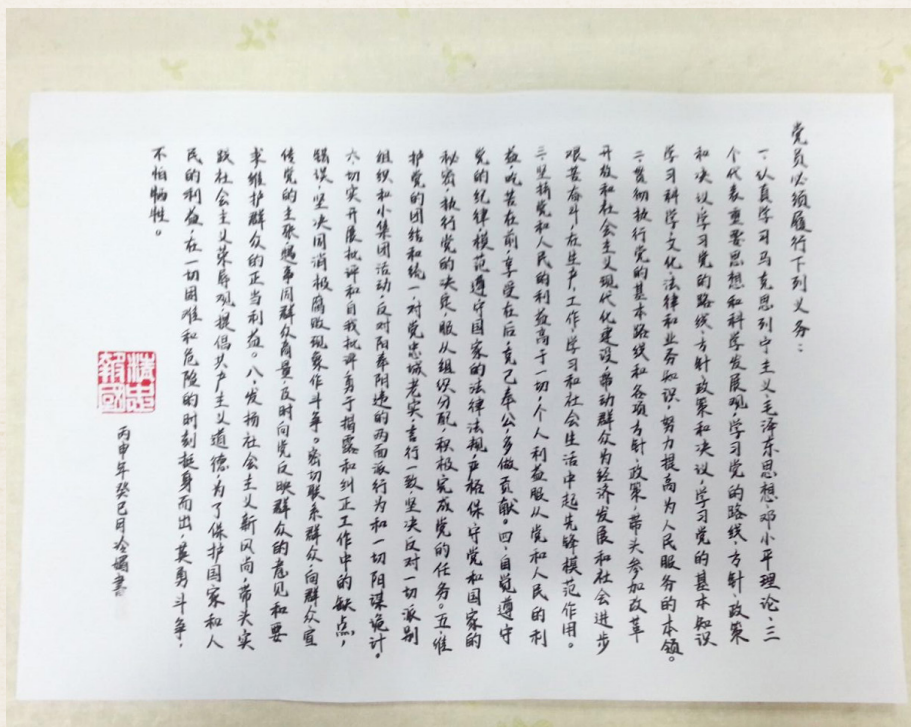 党员必须履行下列义务：
一、认真学习马克思列宁主义、毛泽东思想、邓小平理论、三
个代表重要思想和科学发展观，学习党的路线、方针、政策
和决议学习党的路线、方针政策和决议，学习党的基本知识
学习科学文化、法律和业务知识，努力提高为人民服务的本领。
二、贯彻执行党的基本路线和各项方针、政策，带头参加改革
开放和社会主义现代化建设，带动群众为经济发展和社会进步
艰苦奋斗，在生产、工作、学习和社会生活中起先锋模范作用。
三、坚持党和人民的利益高于一切，个人利益服从党和人民的利
益，吃苦在前，享受在后，克己奉公，多做贡献。四、自觉遵守
党的纪律，模范遵守国家的法律法规，严格保守党和国家的
秘密，执行党的决定，服从组织分配，积极完成党的任务。五、维
护党的团结和统一，对党忠诚老实，言行一致，坚决反对一切派别
组织和小集团活动，反对阳奉阴违的两面派行为和一切阴谋诡计。
六、切实开展批评和自我批评，勇于揭露和纠正工作中的缺点，
错误，坚决同消极腐败现象作斗争。密切联系群众，向群众宣
传党的主张，遇事同群众商量，及时向党反映群众的意见和要
求维护群众的正当利益。八、发扬社会主义新风尚，带头实
践社会主义荣辱观，提倡共产主义道德，为了保护国家和人
民的利益，在一切困难和危险的时刻挺身而出，英勇斗争，
不怕牺牲。
精忠
報國
丙申年癸巳月 书